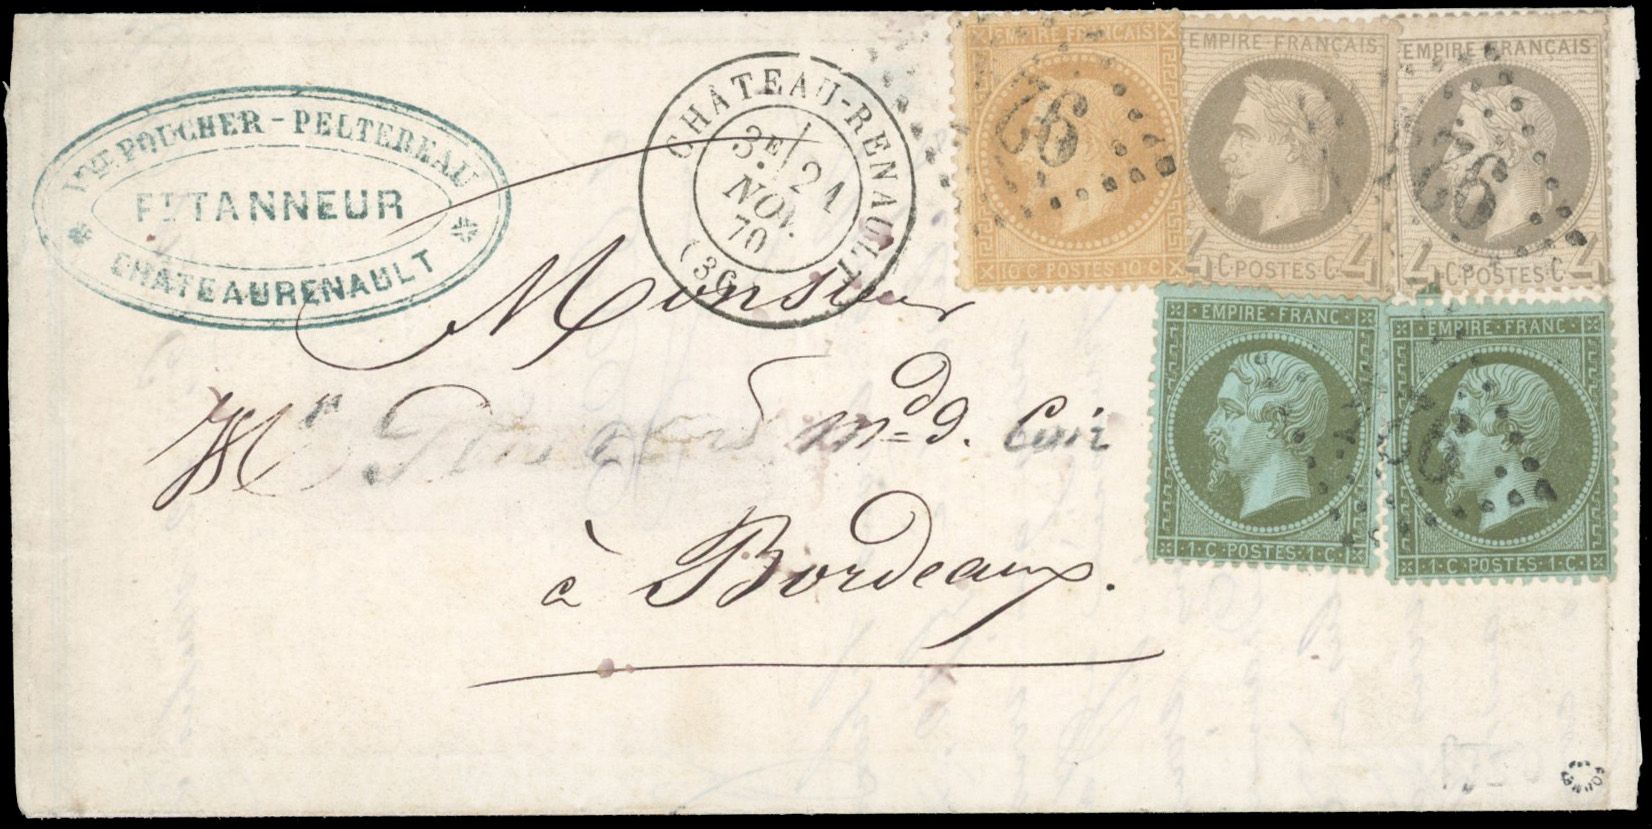 Vve POUCHER-PELTEREAU
Ft TANNEUR
CHATEAURENAULT
CHÂTEAU-RENAULT
3E
21
NOV.
70
(36)
EMPIRE FRANÇAIS
10 C POSTES 10 C
EMPIRE FRANÇAIS
4 C POSTES C 4
EMPIRE FRANÇAIS
4 C POSTES C 4
EMPIRE FRANC
1 C POSTES 1 C
EMPIRE FRANC
1 C POSTES 1 C
Monsieur
Md d. Cuir
à Bordeaux.